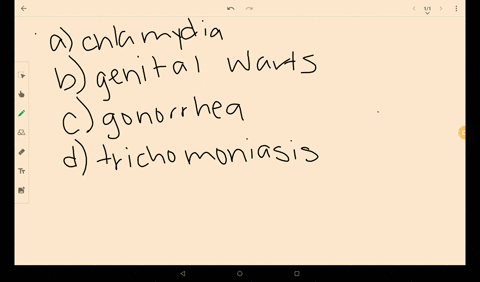 1/1
a) chlamydia
b) genital warts
c) gonorrhea
d) trichomoniasis
Tt